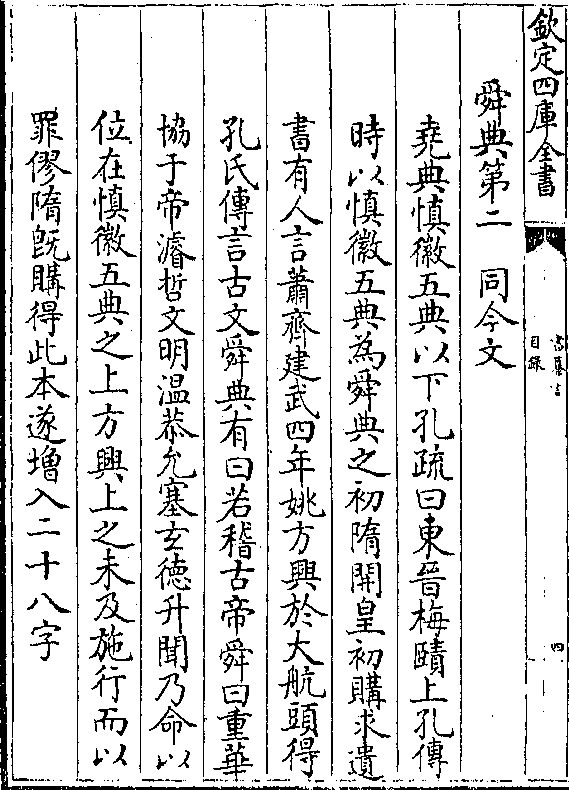 欽定四庫全書
目錄
四
舜典第二　同今文
堯典慎徽五典以下孔疏曰東晉梅賾上孔傳
時以慎徽五典為舜典之初隋開皇初購求遺
書有人言蕭齊建武四年姚方興於大航頭得
孔氏傳言古文舜典有曰若稽古帝舜曰重華
協于帝濬哲文明温恭允塞玄德升聞乃命以
位在慎徽五典之上方興上之未及施行而以
罪僇隋既購得此本遂增入二十八字